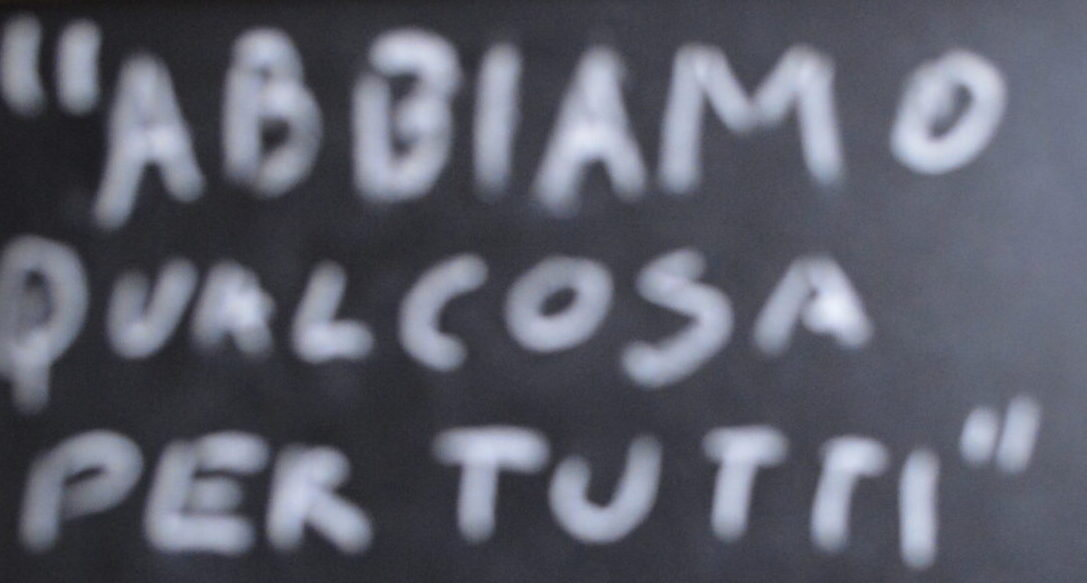 "ABBIAMO
QUALCOSA
PER TUTTI"